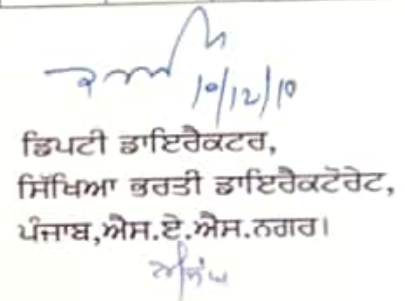 10/12/10
ਡਿਪਟੀ ਡਾਇਰੈਕਟਰ,
ਸਿੱਖਿਆ ਭਰਤੀ ਡਾਇਰੈਕਟੋਰੇਟ,
ਪੰਜਾਬ,ਐਸ.ਏ.ਐਸ.ਨਗਰ।